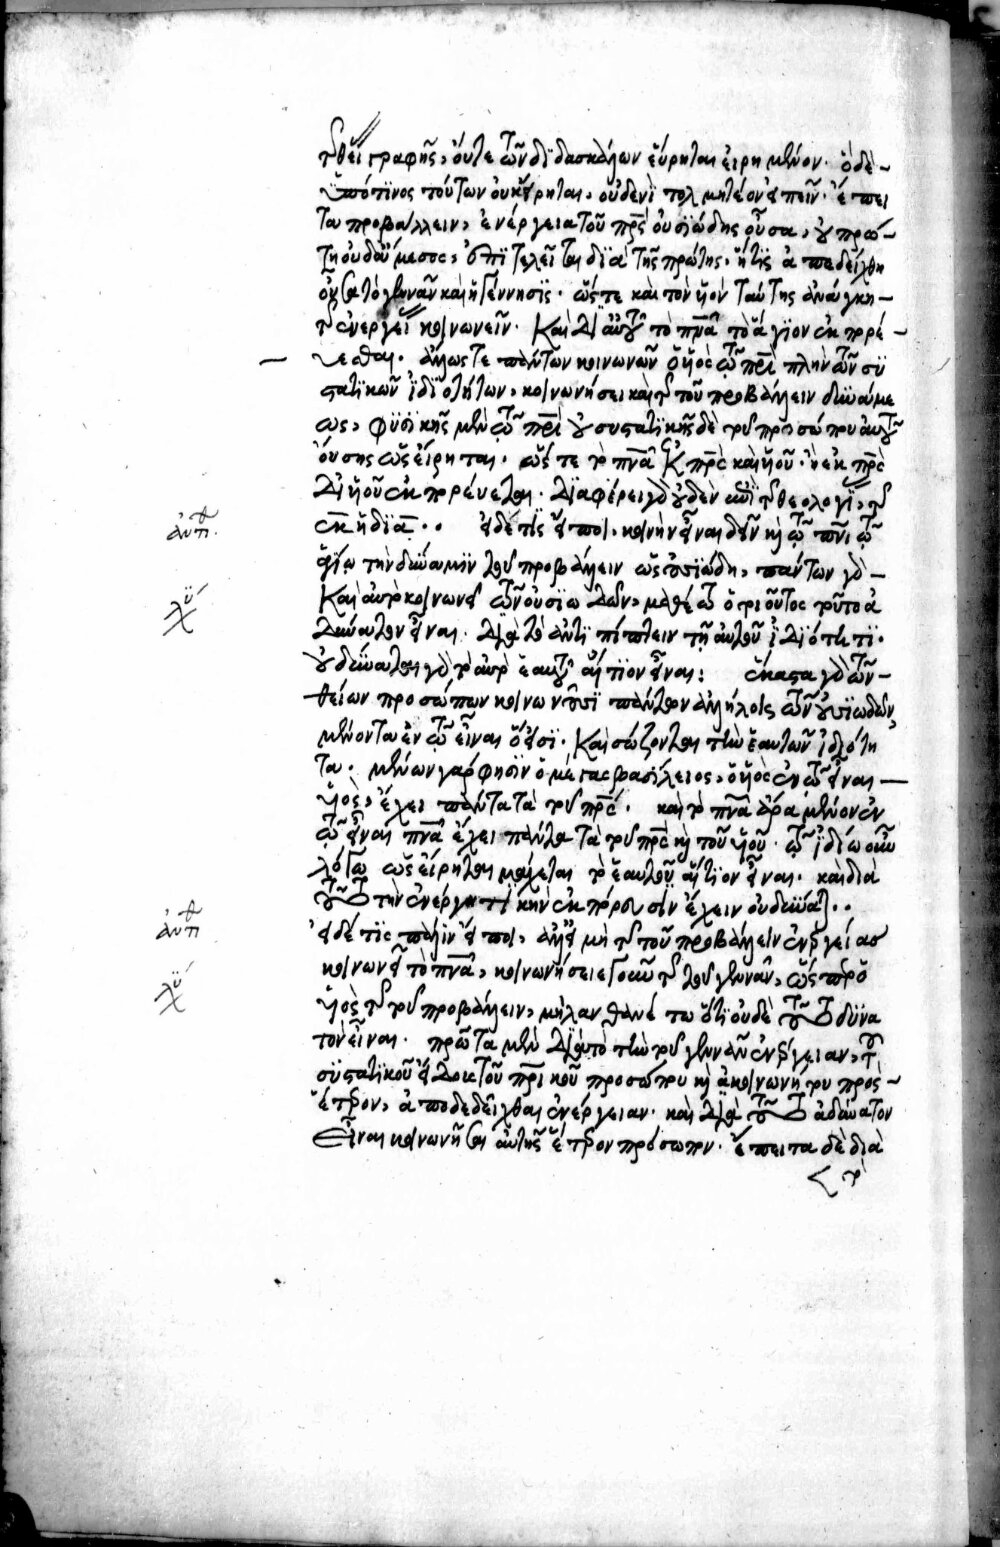 τῆς θείας γραφῆς, οὔτε τῶν διδασκάλων εὕρηται εἰρημένον· ὃ δὲ
ὑπό τινος τούτων οὐκ εἴρηται, οὐδενὶ τολμητέον εἰπεῖν· ἔπει
τα προβάλλειν, ἐνέργεια τοῦ πρς οὐσιώδης οὖσα, οὐ πρώ
τη οὐδ' ἄμεσος, ἐπιτελεῖται διὰ τῆς πρώτης· ἥτις ἀπεδείχθη
οὖσα τὸ γεννᾶν καὶ ἡ γέννησις· ὥστε καὶ τὸν υἱὸν ταύτης ἀνάγκη
τῆς ἐνεργείας κοινωνεῖν· καὶ δι' αὐτοῦ τὸ πνα τὸ ἅγιον ἐκπορεύ
εσθαι· ἄλλως τε πάντων κοινωνῶν ὁ υἱὸς τῷ πρι πλὴν τῶν συ
στατικῶν ἰδιοτήτων, κοινωνήσει καὶ τῆς τοῦ προβάλλειν δυνάμε
ως, φυσικῆς μὲν τῷ πρι οὐ συστατικῆς δὲ τοῦ προσώπου αὐτοῦ
οὔσης ὡς εἴρηται· ὥστε τὸ πνα ἐκ πρς καὶ υἱοῦ· ἢ ἐκ πρς
δι' υἱοῦ ἐκπορεύεται· διαφέρει γὰρ οὐδὲν ἐπὶ τῆς θεολογίας, τῆς
ἐκ ἡ διά·· εἰ δέ τις εἴποι, κοινὴν εἶναι δεῖν καὶ τῷ πνι τῷ
ἁγίῳ τὴν δύναμιν τοῦ προβάλλειν ὡς οὐσιώδη, πάντων γὰρ
καὶ αὐτὸ κοινωνεῖ τῶν οὐσιωδῶν, μαθέτω ὁ τοιοῦτος τοῦτο ἀ
δύνατον εἶναι· διὰ τὸ ἀντιπίπτειν τῇ αὐτοῦ ἰδιότητι·
οὐ δύναται γὰρ τὸ αὐτὸ ἑαυτοῦ αἴτιον εἶναι: ἕκαστα γὰρ τῶν
θείων προσώπων κοινωνοῦσι πάντων ἀλλήλοις τῶν οὐσιωδῶν,
μένοντα ἐν τῷ εἶναι ὅ εἰσι· καὶ σώζονται τὴν ἑαυτῶν ἰδιότη
τα· μένων γάρ φησιν ὁ μέγας βασίλειος, ὁ υἱὸς ἐν τῷ εἶναι
υἱὸς, ἔχει πάντα τὰ τοῦ πρς· καὶ τὸ πνα ἄρα μένον ἐν
τῷ εἶναι πνα ἔχει πάντα τὰ τοῦ πρς καὶ τοῦ υἱοῦ· τῷ ἰδίῳ οὖν
λόγῳ ὡς εἴρηται μάχεται τὸ ἑαυτοῦ αἴτιον εἶναι· καὶ διὰ
τοῦτο τὴν ἐνεργητικὴν ἐκπόρευσιν ἔχειν οὐ δύναται··
εἰ δέ τις πάλιν εἴποι, ἀλλ' εἰ μὴ τῆς τοῦ προβάλλειν ἐνεργείας
κοινωνεῖ τὸ πνα, κοινωνήσειε γοῦν τῆς τοῦ γεννᾶν, ὥσπερ ὁ
υἱὸς τῆς τοῦ προβάλλειν, μὴ λανθανέτω ὅτι οὐδὲ τοῦτο δυνα
τὸν εἶναι· πρῶτα μὲν διὰ τὸ τὴν τοῦ γεννᾶν ἐνέργειαν, τοῦ
συστατικοῦ εἰδικοῦ τοῦ πρικοῦ προσώπου καὶ ἀκοινωνήτου πρὸς
ἕτερον, ἀποδεδεῖχθαι ἐνέργειαν· καὶ διὰ τοῦτο ἀδύνατον
εἶναι κοινωνῆσαι αὐτῆς ἕτερον πρόσωπον· ἔπειτα δὲ διὰ
τὸ
ἀντιθ
λύ
ἀντιθ
λύ